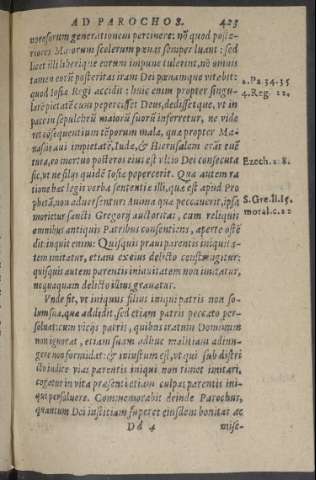 AD PAROCHOS. 423
uorẽsorum generationem pertinere: nõ quod poste-
riores Maiorum scelerum pœnas semper luant: sed
licet illi liberique eorum impune tulerint, nõ omnis
tamen eorũ posteritas iram Dei pœnamque vitabit:
quod Iosiæ Regi accidit: huic enim propter singu-
larẽ pietatẽ cum pepercisset Deus, dedissetque, vt in
pace in sepulchrũ maiorũ suorũ inferretur, ne vide
ret cõsequentium tẽporum mala, quæ propter Ma-
nassæ aui impietatẽ, Iudæ, & Hierusalem erãt euẽ
tura, eo mortuo posteros eius est vltio Dei consecuta
sic, vt ne filijs quidẽ Iosiæ pepercerit. Qua autem ra
tione hæc legis verba sententiæ illi, quæ est apud Pro
phetã, non aduersentur: Anima quæ peccauerit, ipsa
morietur sancti Gregorij auctoritas, cum reliquis
omnibus antiquis Patribus consentiens, aperte ostẽ
dit inquit enim: Quisquis praui parentis iniquit a-
tem imitatur, etiam ex eius delicto constringitur:
quisquis autem parentis iniquitatem non imitatur,
nequaquam delicto illius grauatur.
Vnde fit, vt iniquus filius iniqui patris non so-
lum sua, quæ addidit, sed etiam patris peccata per-
soluat: cum vicijs patris, quibus iratum Dominum
non ignorat, etiam suam adhuc malitiam adiun-
gere non formidat: & iniustum est, vt qui sub distri
cto iudice vias parentis iniqui non timet imitari,
cogatur in vita præsenti etiam culpas parentis ini-
qui persoluere. Commemorabit deinde Parochus,
quantum Dei iustitiam superet eiusdem bonitas ac
Dd 4 mise-
2. Pa. 34. 35
4. Reg. 22,
Ezech. 18.
S. Gre. li. 15.
moral. c. 22